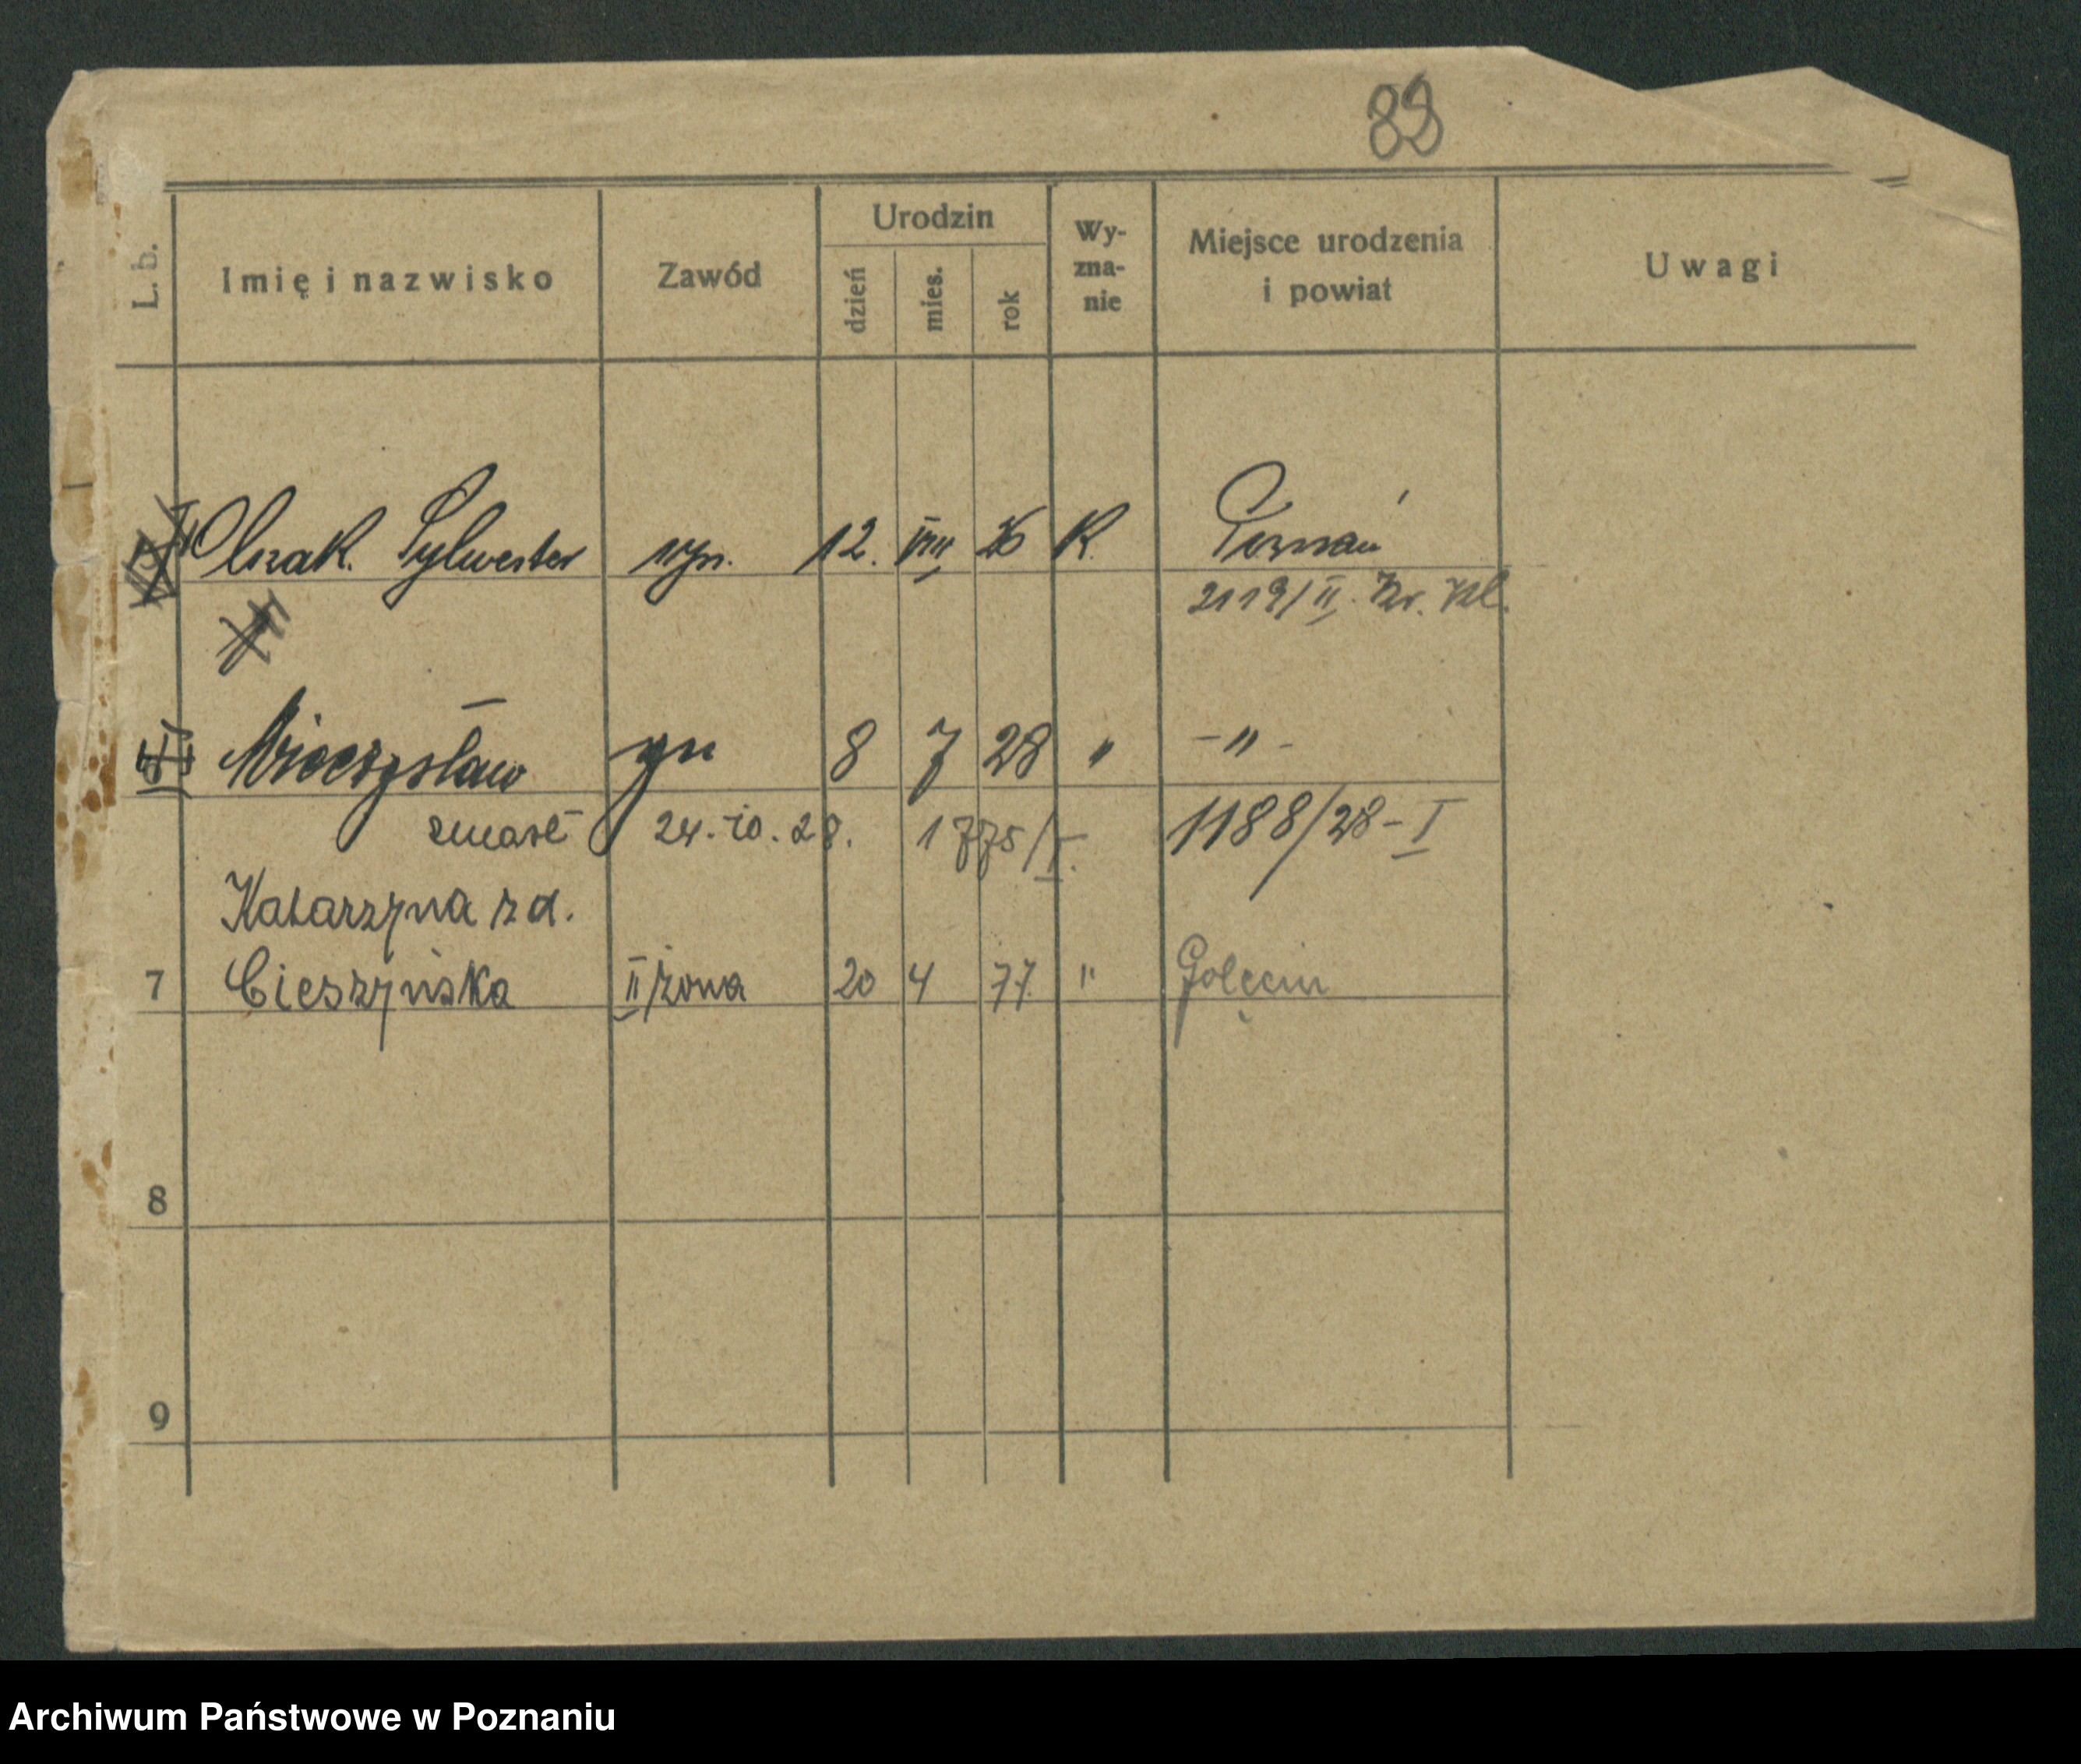 89
L. b. Imię i nazwisko Zawód Urodzin dzień mies. rok Wy-zna-nie Miejsce urodzenia i powiat Uwagi
Olszak. Sylwester syn. 12. VIII 26 K. Poznań
2119/II. Kr. Kl.
Mieczysław syn 8 7 28 " - " -
zmarł 24.10.28. 1775/I. 1188/28-I
Katarzyna zd.
7 Cieszyńska II żona 20 4 77 " Golęcin
8
9
Archiwum Państwowe w Poznaniu